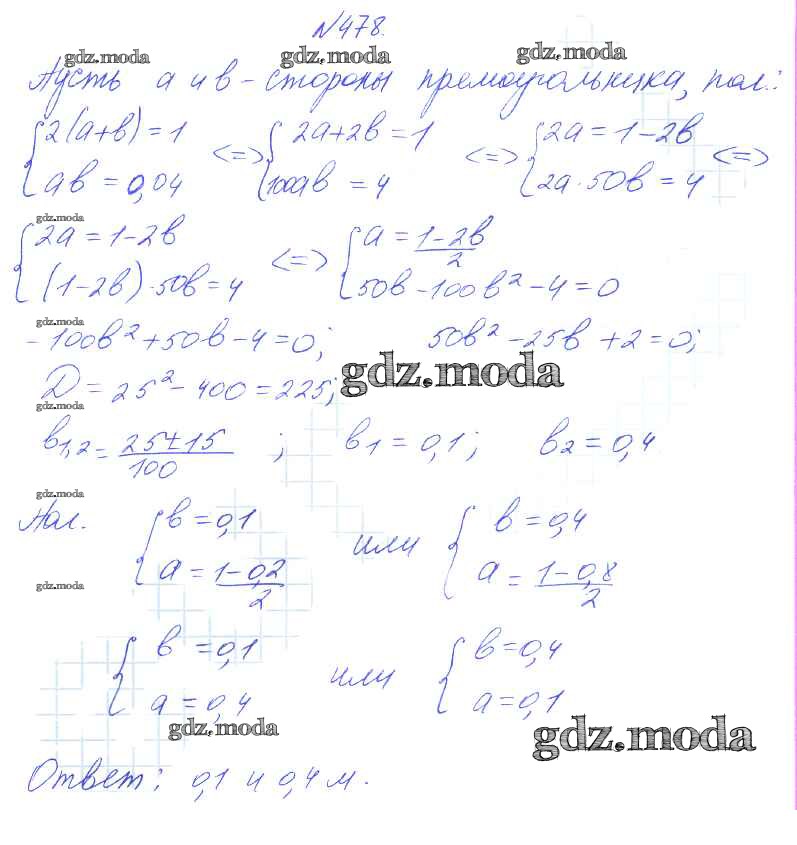 №478.
gdz.moda gdz.moda gdz.moda
Пусть а и в - стороны прямоугольника, пол.:
{2(a+в)=1 <=> {2a+2в=1 <=> {2a=1-2в <=>
{ав=0,04 {100aв=4 {2a·50в=4
gdz.moda
{2a=1-2в <=> {a=1-2в/2
{(1-2в)·50в=4 {50в-100в²-4=0
gdz.moda
-100в²+50в-4=0; 50в²-25в+2=0;
gdz.moda
D=25²-400=225;
gdz.moda
в1,2=25±15/100; в1=0,1; в2=0,4
gdz.moda
Пол. {в=0,1 или {в=0,4
{a=1-0,2/2 {a=1-0,8/2
gdz.moda
{в=0,1 или {в=0,4
{a=0,4 {a=0,1
gdz.moda gdz.moda
Ответ: 0,1 и 0,4 м.